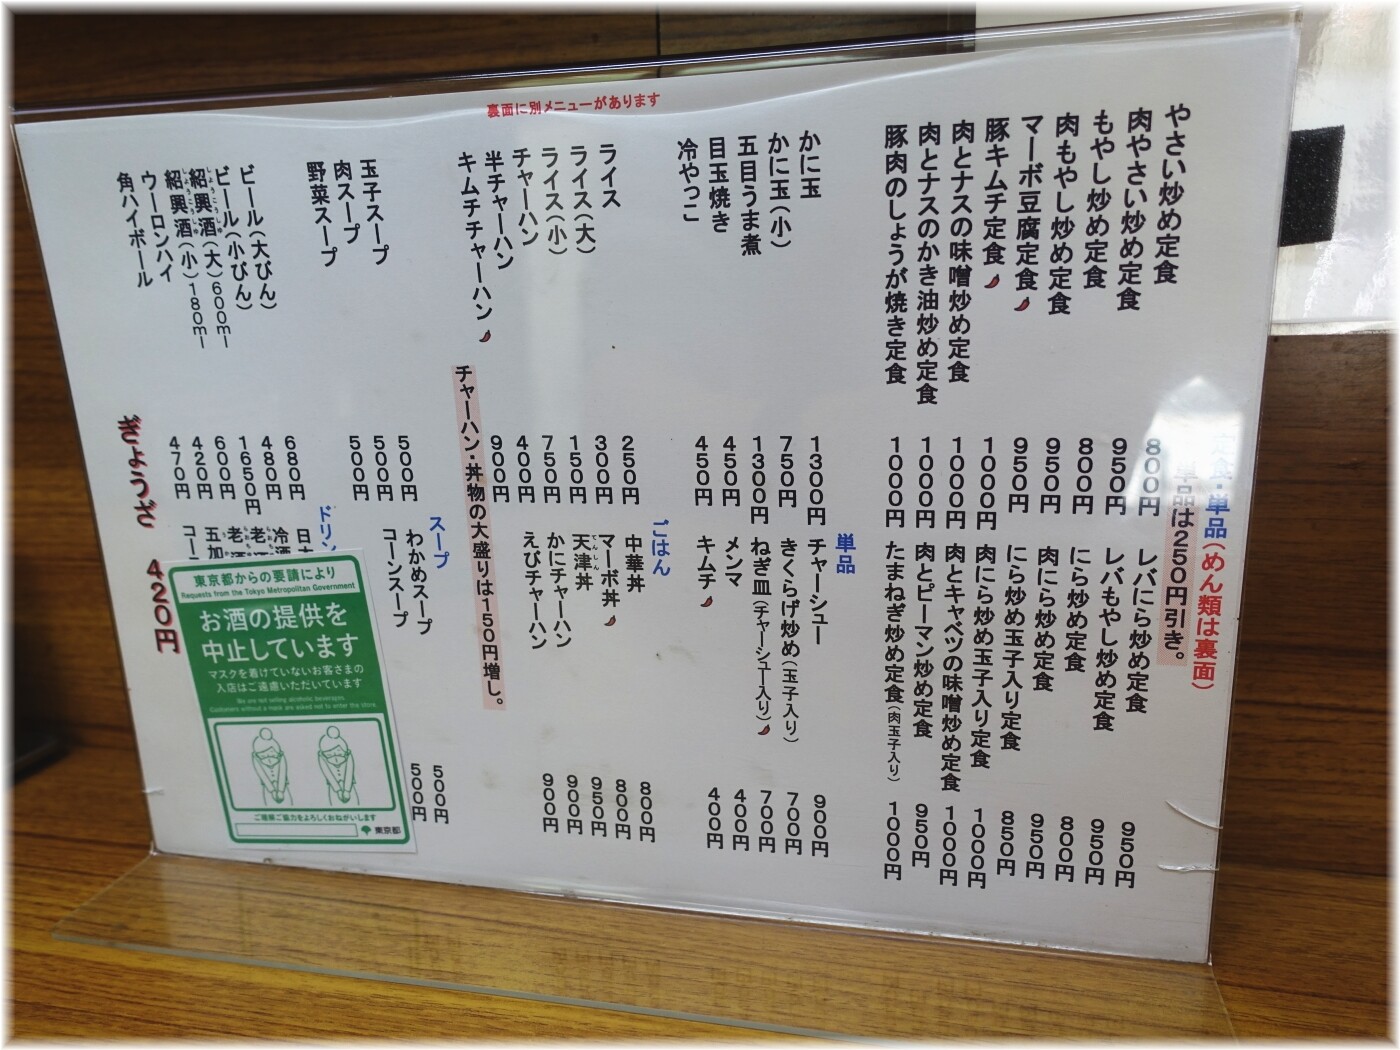 裏面に別メニューがあります
・単品(めん類は裏面)
単品は250円引き。
やさい炒め定食 800円
肉やさい炒め定食 950円
もやし炒め定食 800円
肉もやし炒め定食 950円
マーボ豆腐定食 950円
豚キムチ定食 1000円
肉とナスの味噌炒め定食 1000円
肉とナスのかき油炒め定食 1000円
豚肉のしょうが焼き定食 1000円
レバにら炒め定食 950円
レバもやし炒め定食 950円
にら炒め定食 800円
肉にら炒め定食 950円
にら炒め玉子入り定食 850円
肉にら炒め玉子入り定食 1000円
肉とキャベツの味噌炒め定食 1000円
肉とピーマン炒め定食 950円
たまねぎ炒め定食(肉玉子入り) 1000円
単品
かに玉 1300円
かに玉(小) 750円
五目うま煮 1300円
目玉焼き 450円
冷やっこ 450円
チャーシュー 900円
きくらげ炒め(玉子入り) 700円
ねぎ皿(チャーシュー入り) 700円
メンマ 400円
キムチ 400円
ごはん
ライス 250円
ライス(大) 300円
ライス(小) 150円
チャーハン 750円
半チャーハン 400円
キムチチャーハン 900円
中華丼 800円
マーボ丼 800円
天津丼 950円
てんしん
かにチャーハン 900円
えびチャーハン 900円
チャーハン・丼物の大盛りは150円増し。
スープ
玉子スープ 500円
肉スープ 500円
野菜スープ 500円
わかめスープ 500円
コーンスープ 500円
ドリン
ビール(大びん) 680円
ビール(小びん) 480円
紹興酒(大)600ml 1650円
しょうこうしゅ
紹興酒(小)180ml 600円
しょうこうしゅ
ウーロンハイ 420円
角ハイボール 470円
日本
冷酒
老酒
老酒
五加
コー
ぎょうざ 420円
東京都からの要請により
Requests from the Tokyo Metropolitan Government
お酒の提供を
中止しています
マスクを着けていないお客さまの
入店はご遠慮いただいています
We are not selling alcoholic beverages.
Customers without a mask are asked not to enter the store.
ご理解ご協力をよろしくおねがいします
東京都